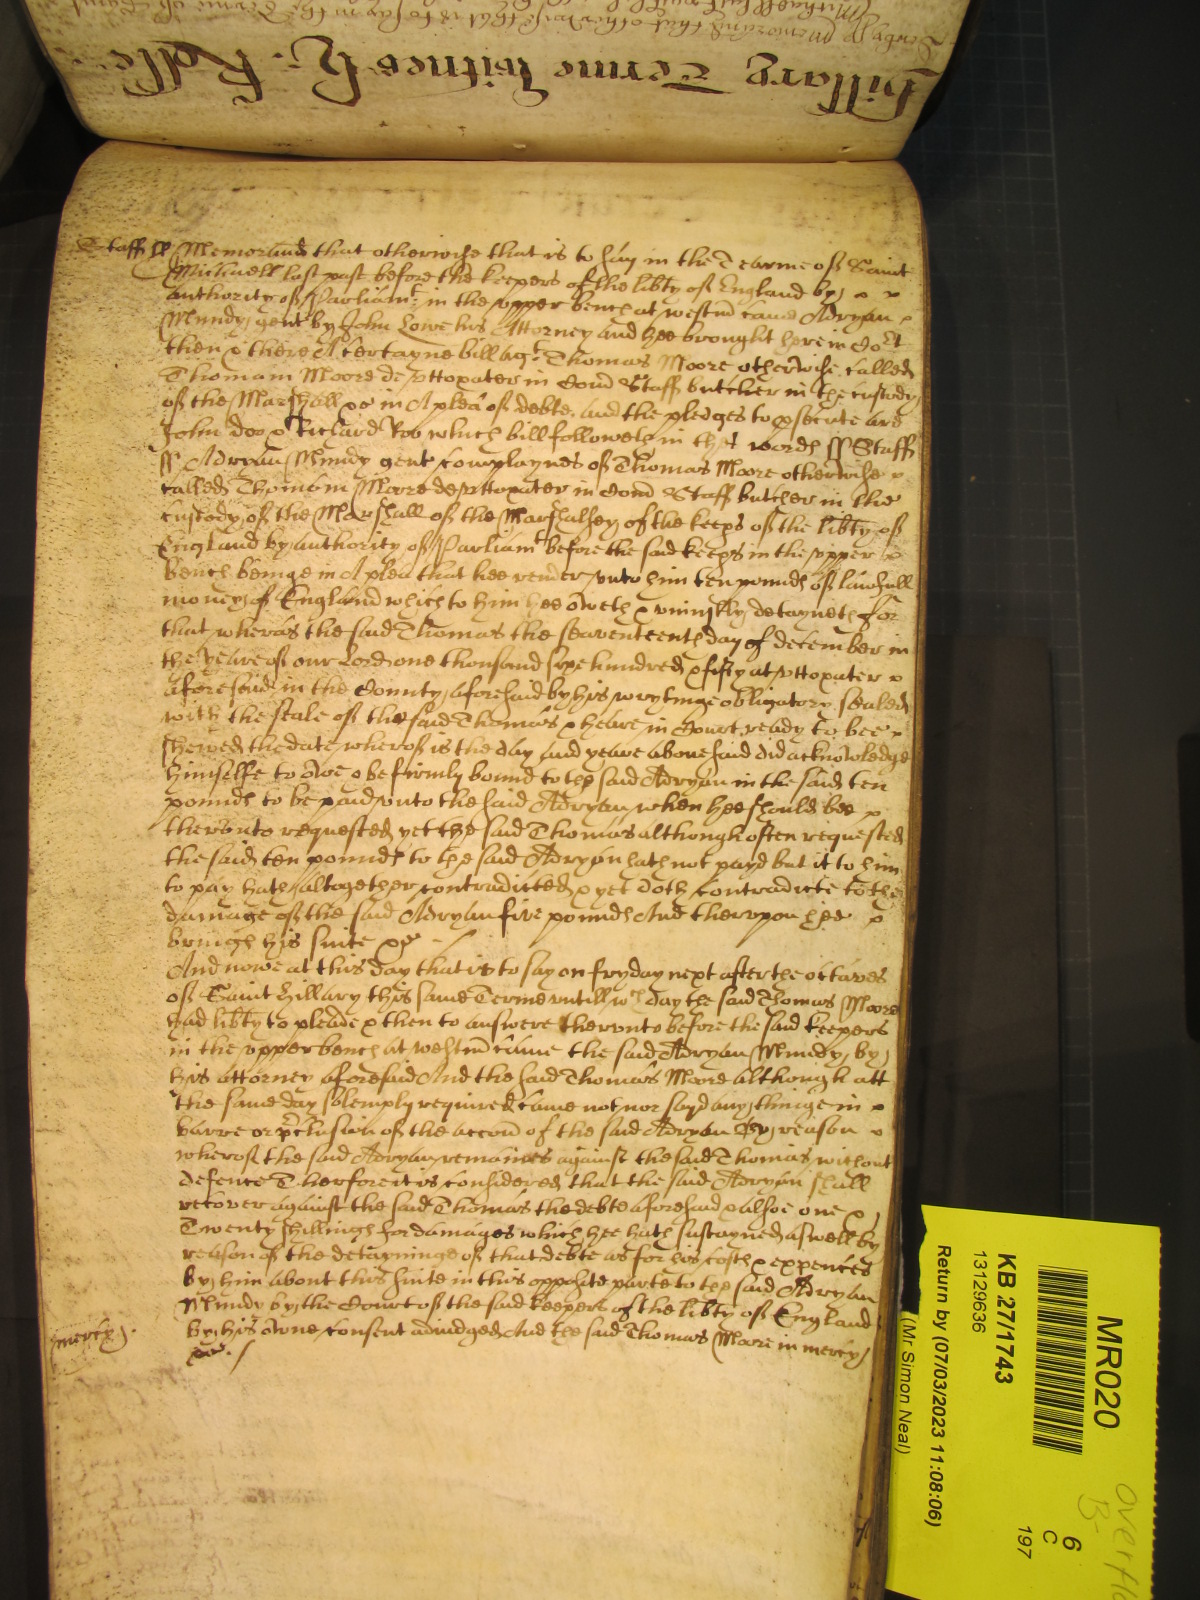 Hillary Terme Witnes H: Rolle
Staff ss Memorand that otherwise that is to say in the Tearme of Saint
Michaell last past before the keepers of the libty of England by
authority of Parliamt in the upper bench at westm came Adryan
Mundy gent by John Lowe his Attorney and hee brought here in Court
then & there A certayne bill agt Thomas Moore otherwise called
Thomam Moore de Uttoxater in Com Staff butcher in the custody
of the Marshall &c in A plea of debte. And the pledges to psecute are
John Doo & Richard Roo which bill followeth in these words ss Staff
ss Adryan Mundy gent complaynes of Thomas Moore otherwise
called Thomam Moore de Uttoxater in Com Staff butcher in the
custody of the Marshall of the Marshalsey of the keeps of the libty of
England by authority of Parliamt before the said keeps in the upper
Bench beinge in A plea that hee render unto him ten pounds of lawfull
money of England which to him hee oweth & uniustly detayneth for
that wheras the said Thomas the seaventeenth day of december in
the yeare of our Lord one thousand sixe hundred & fifty at Uttoxater
aforesaid in the County aforesaid by his wrytinge obligatory sealed
with the seale of the said Thomas & heare in Court ready to bee
shewed the date wherof is the day and yeare abovesaid did acknowledge
himselfe to owe & be firmly bound to the said Adryan in the said ten
pounds to be paid unto the said Adryan when hee should bee
therunto requested yet the said Thomas although often requested
the said ten pounds to the said Adryan hath not payd but it to him
to pay hath altogether contradicted & yet doth contradicte to the
damage of the said Adryan five pounds And therupon hee
bringh his suite &c
And nowe at this day that is to say on fryday next after the octaves
of Saint Hillary this same Terme untill wch day the said Thomas Moore
had libty to pleade & then to answere therunto before the said keepers
in the upper bench at westm came the said Adryan Mundy by
his attorney aforesaid And the said Thomas Moore although att
the same day solemply required came not nor sayd any thinge in
barre or pclusion of the accon of the said Adryan By reason
wherof the said Adryan remaines against the said Thomas without
defence Therfore it is considered that the said Adryan shall
recover against the said Thomas the debte aforesaid & alsoe one &
Twenty shillings for damages which hee hath sustayned aswell by
reason of the detayninge of that debte as for his costs & expences
by him about this suite in this opposite parte to the said Adryan
Mundy by the Court of the said keepers of the libty of England
by his owne consent adiudged And the said Thomas Moore in mercy
mercy.
&c.
MR020
KB 27/1743
13129636
Return by (07/03/2023 11:08:06)
(Mr Simon Neal)
6
C
197
overflo
B-